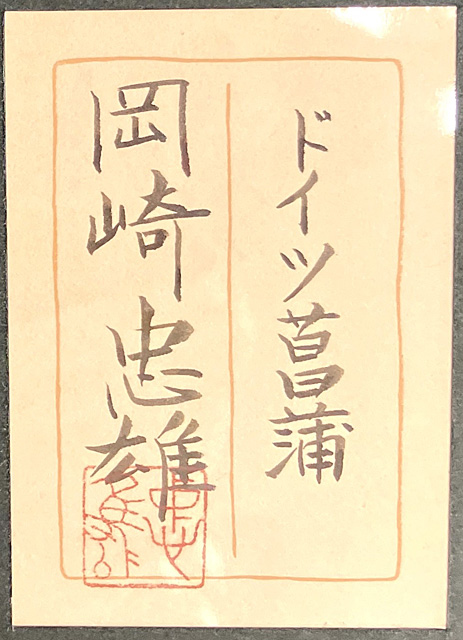 ドイツ菖蒲
岡崎忠雄